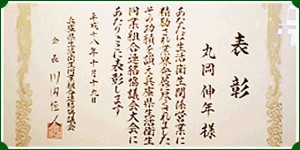 表彰
丸岡伸年様
あなたは生活衛生関係営業に
精励され業界発展に尽くされました
その功績を讃え兵庫県生活衛生
同業組合連絡協議会大会に
あたりここに表彰します
平成十八年十月十九日
兵庫県生活衛生同業組合連絡協議会
会長